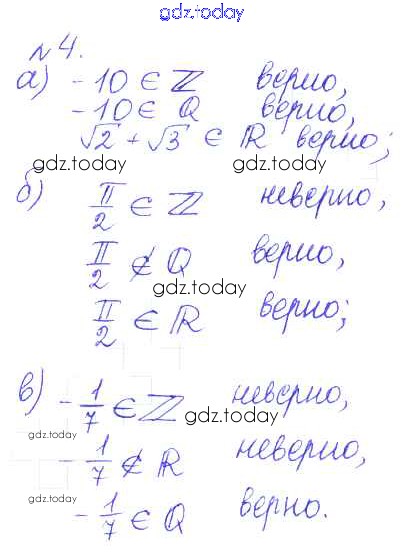 gdz.today
№4.
а) -10 ∈ ℤ верно,
-10 ∈ ℚ верно,
√2 + √3 ∈ ℝ верно;
gdz.today gdz.today
б) π/2 ∈ ℤ неверно,
π/2 ∉ ℚ верно,
gdz.today
π/2 ∈ ℝ верно;
в) -1/7 ∈ ℤ неверно,
gdz.today gdz.today
-1/7 ∉ ℝ неверно,
gdz.today gdz.today
-1/7 ∈ ℚ верно.